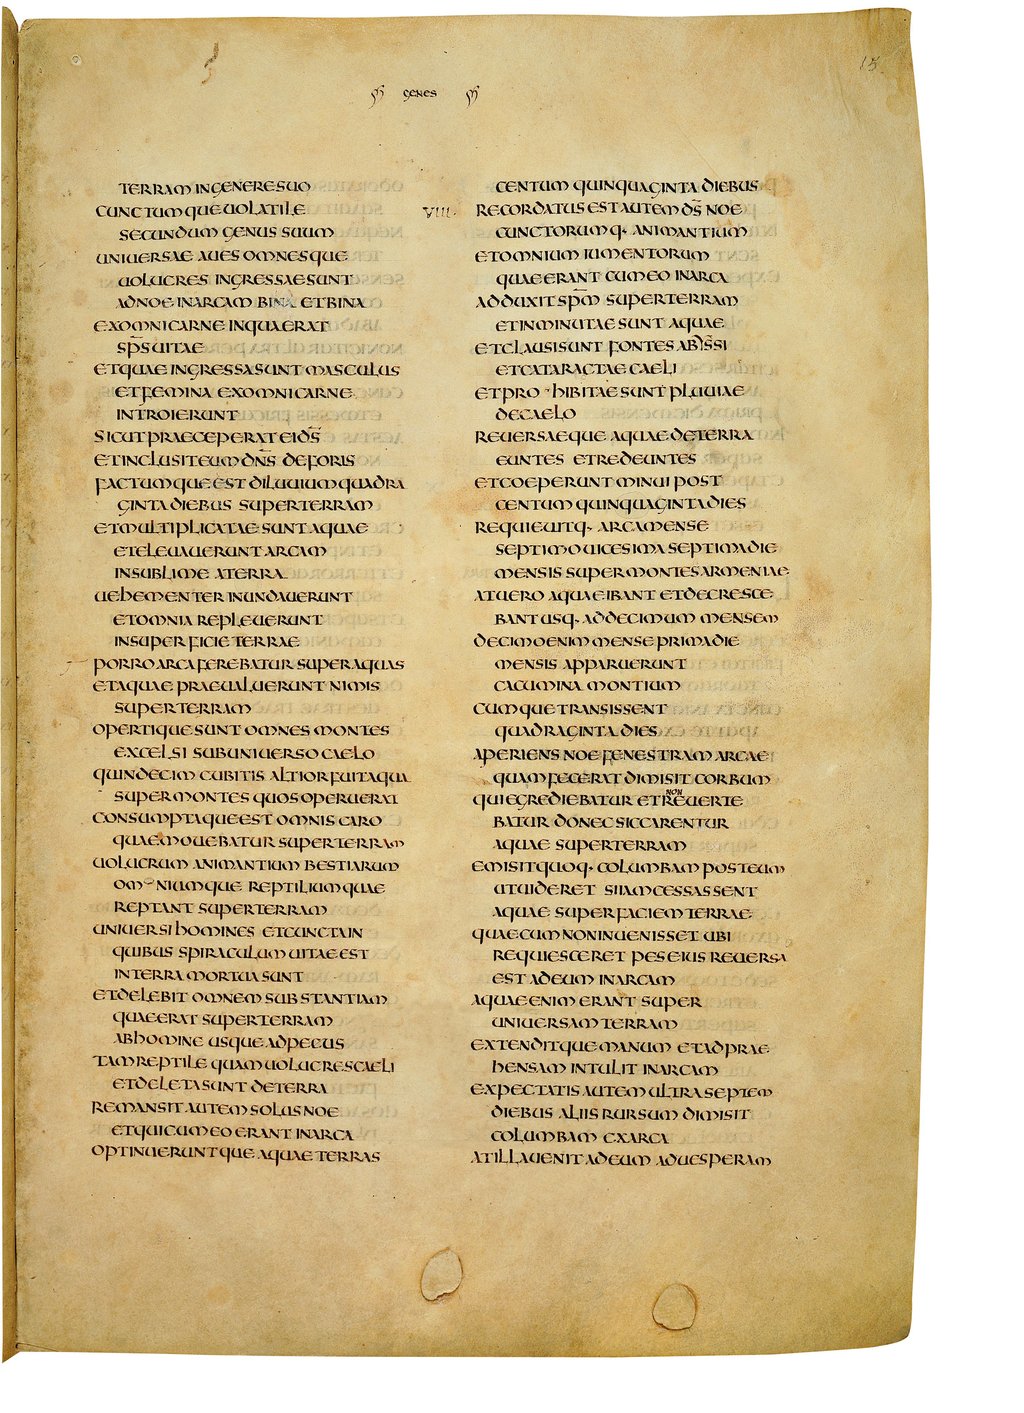 GENES
15
TERRAM IN GENERE SUO
CUNCTUMQUE UOLATILE
SECUNDUM GENUS SUUM
UNIUERSAE AUES OMNESQUE
UOLUCRES INGRESSAE SUNT
AD NOE IN ARCAM BINA ET BINA
EX OMNI CARNE IN QUA ERAT
SP̅S UITAE
ET QUAE INGRESSA SUNT MASCULUS
ET FEMINA EX OMNI CARNE
INTROIERUNT
SICUT PRAECEPERAT EI D̅S̅
ET INCLUSIT EUM D̅N̅S̅ DEFORIS
FACTUMQUE EST DILUUIUM QUADRA
GINTA DIEBUS SUPER TERRAM
ET MULTIPLICATAE SUNT AQUAE
ET ELEUAUERUNT ARCAM
IN SUBLIME A TERRA
UEHEMENTER INUNDAUERUNT
ET OMNIA REPLEUERUNT
IN SUPERFICIE TERRAE
PORRO ARCA FEREBATUR SUPER AQUAS
ET AQUAE PRAEUALUERUNT NIMIS
SUPER TERRAM
OPERTIQUE SUNT OMNES MONTES
EXCELSI SUB UNIUERSO CAELO
QUINDECIM CUBITIS ALTIOR FUIT AQUA
SUPER MONTES QUOS OPERUERAT
CONSUMPTAQUE EST OMNIS CARO
QUAE MOUEBATUR SUPER TERRAM
UOLUCRUM ANIMANTIUM BESTIARUM
OMNIUMQUE REPTILIUM QUAE
REPTANT SUPER TERRAM
UNIUERSI HOMINES ET CUNCTA IN
QUIBUS SPIRACULUM UITAE EST
IN TERRA MORTUA SUNT
ET DELEBIT OMNEM SUBSTANTIAM
QUAE ERAT SUPER TERRAM
AB HOMINE USQUE AD PECUS
TAM REPTILE QUAM UOLUCRES CAELI
ET DELETA SUNT DE TERRA
REMANSIT AUTEM SOLUS NOE
ET QUI CUM EO ERANT IN ARCA
OPTINUERUNTQUE AQUAE TERRAS
CENTUM QUINQUAGINTA DIEBUS
VIII· RECORDATUS EST AUTEM D̅S̅ NOE
CUNCTORUMQ· ANIMANTIUM
ET OMNIUM IUMENTORUM
QUAE ERANT CUM EO IN ARCA
ADDUXIT SP̅M SUPER TERRAM
ET INMINUTAE SUNT AQUAE
ET CLAUSI SUNT FONTES ABISSI
ET CATARACTAE CAELI
ET PROHIBITAE SUNT PLUUIAE
DE CAELO
REUERSAEQUE AQUAE DE TERRA
EUNTES ET REDEUNTES
ET COEPERUNT MINUI POST
CENTUM QUINQUAGINTA DIES
REQUIEUITQ· ARCA MENSE
SEPTIMO UICESIMA SEPTIMA DIE
MENSIS SUPER MONTES ARMENIAE
AT UERO AQUAE IBANT ET DECRESCE
BANT USQ· AD DECIMUM MENSEM
DECIMO ENIM MENSE PRIMA DIE
MENSIS APPARUERUNT
CACUMINA MONTIUM
CUMQUE TRANSISSENT
QUADRAGINTA DIES
APERIENS NOE FENESTRAM ARCAE
QUAM FECERAT DIMISIT CORBUM
QUI EGREDIEBATUR ET NON REUERTE
BATUR DONEC SICCARENTUR
AQUAE SUPER TERRAM
EMISIT QUOQ· COLUMBAM POST EUM
UT UIDERET SI IAM CESSASSENT
AQUAE SUPER FACIEM TERRAE
QUAE CUM NON INUENISSET UBI
REQUIESCERET PES EIUS REUERSA
EST AD EUM IN ARCAM
AQUAE ENIM ERANT SUPER
UNIUERSAM TERRAM
EXTENDITQUE MANUM ET ADPRAE
HENSAM INTULIT IN ARCAM
EXPECTATIS AUTEM ULTRA SEPTEM
DIEBUS ALIIS RURSUM DIMISIT
COLUMBAM EX ARCA
AT ILLA UENIT AD EUM AD UESPERAM